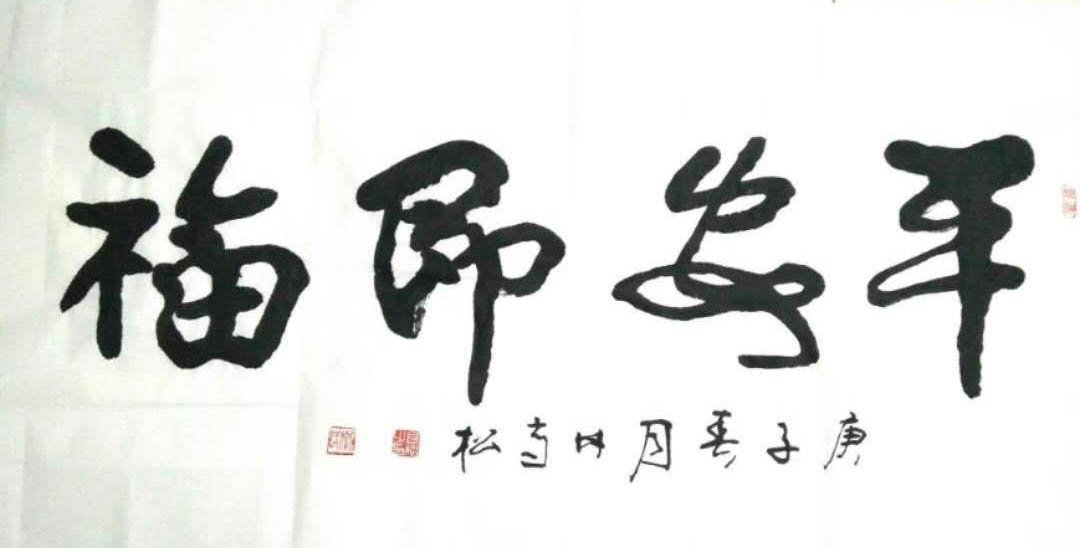 平安即福
庚子春月林高松